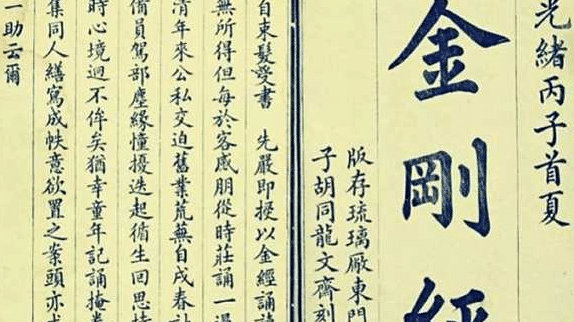 光緒丙子首夏
金剛經
版存琉璃厰東門
子胡同龍文齋刻
自束髮受書　先嚴即授以金經誦
無所得但每於客感朋從時莊誦一過
清年來公私交迫舊業荒蕪自戌春
備員駕部塵緣憧擾迭起循生回思
時心境迥不侔矣猶幸童年記誦掩卷
集同人繕寫成帙意欲置之案頭亦
一助云爾